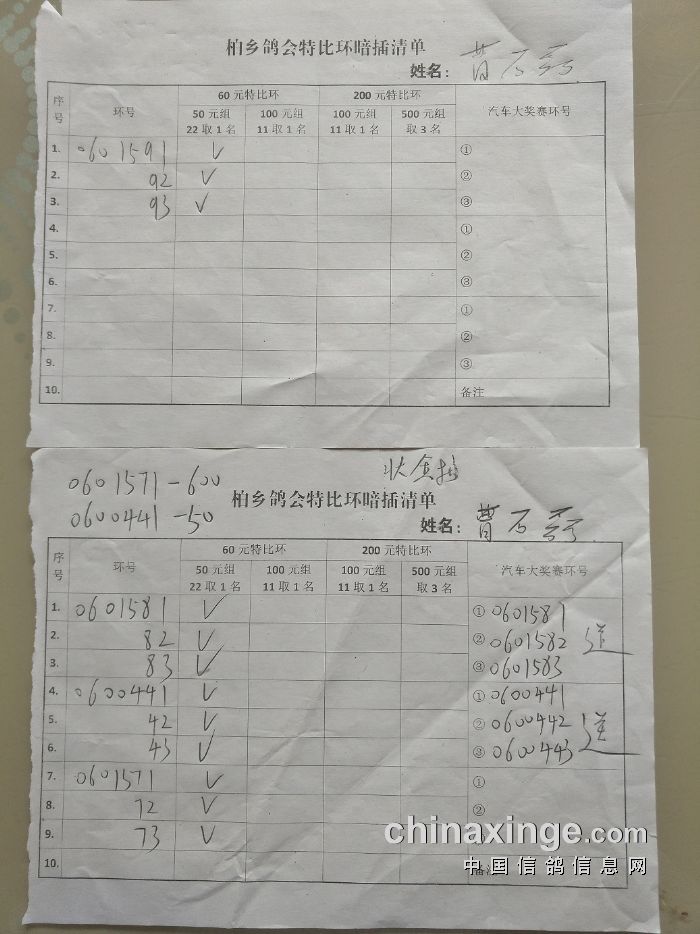 柏乡鸽会特比环暗插清单
姓名：曹石磊
序号 环号 60元特比环 200元特比环 汽车大奖赛环号
50元组 22取1名 100元组 11取1名 100元组 11取1名 500元组 取3名
1. 0601591 √ ①
2. 92 √ ②
3. 93 √ ③
4. ①
5. ②
6. ③
7. ①
8. ②
9. ③
10. 备注
状金插
0601571-600
柏乡鸽会特比环暗插清单
0600441-50
姓名：曹石磊
序号 环号 60元特比环 200元特比环 汽车大奖赛环号
50元组 22取1名 100元组 11取1名 100元组 11取1名 500元组 取3名
1. 0601581 √ ①0601581
2. 82 √ ②0601582 送
3. 83 √ ③0601583
4. 0600441 √ ①0600441
5. 42 √ ②0600442 送
6. 43 √ ③0600443
7. 0601571 √ ①
8. 72 √ ②
9. 73 √
chinaxinge.com
10. 备注
中国信鸽信息网